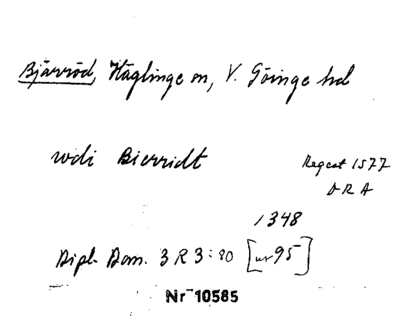 Bjärröd, Häglinge sn, V. Göinge hd
wdi Bierridt
Regest 1577
DRA
1348
Dipl. Dan. 3 R 3:80 [nr 95]
Nr 10585